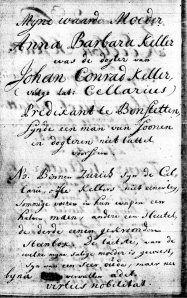 Myne waarde Moeder
Anna Barbara Keller
was de dogter van
Johan Conrad Keller,
(volgs lat: Cellarius)
Predikant te Bonstetten,
Zynde een man van Soonen
en dogteren niet
No. Binnen Zurich zyn de Cel
larii, ofte Kellers niet eenerley,
Sommige voeren in hun wapen een
andre een Sleutel,
de derde eenen gekroonden
de laatste, van de
welke myne Salige moeder is geweest,
Zyn van een Seer oude, maar nu
byna
virtus nobilitat